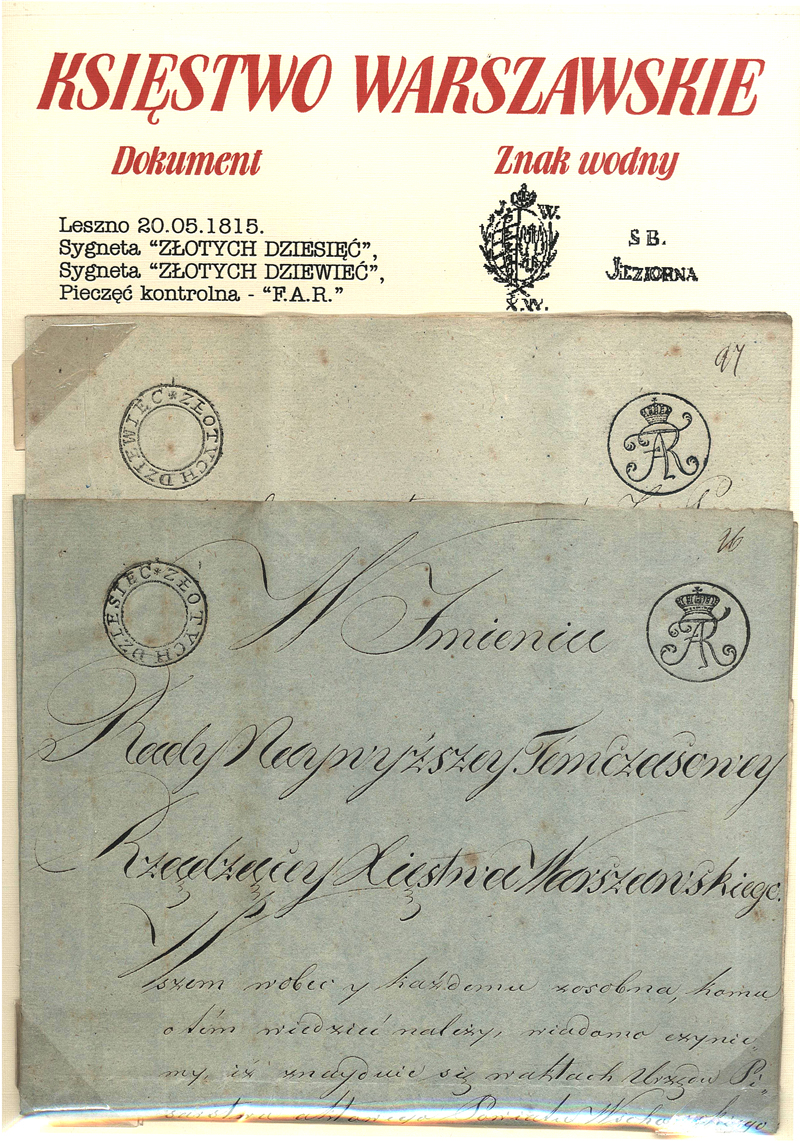 KSIĘSTWO WARSZAWSKIE
Dokument
Znak wodny
Leszno 20.05.1815.
Sygneta “ZŁOTYCH DZIESIĘĆ”,
Sygneta “ZŁOTYCH DZIEWIEĆ”,
Pieczęć kontrolna - “F.A.R.”
J. W.
X.W.
S B.
JEZIORNA
97
ZŁOTYCH DZIEWIEC
26
ZŁOTYCH DZIESIEC
W Imieniu
Rady Naywyższey Tymczasowey
Rządzącey Xięstwa Warszawskiego.
Wszem wobec y każdemu zosobna, komu
o tém wiedzieć należy, wiadomo czynie„
my, iż znayduie się waktach Urzędu Pi„
sarstwa aktowego Powiatu Wschowskiego